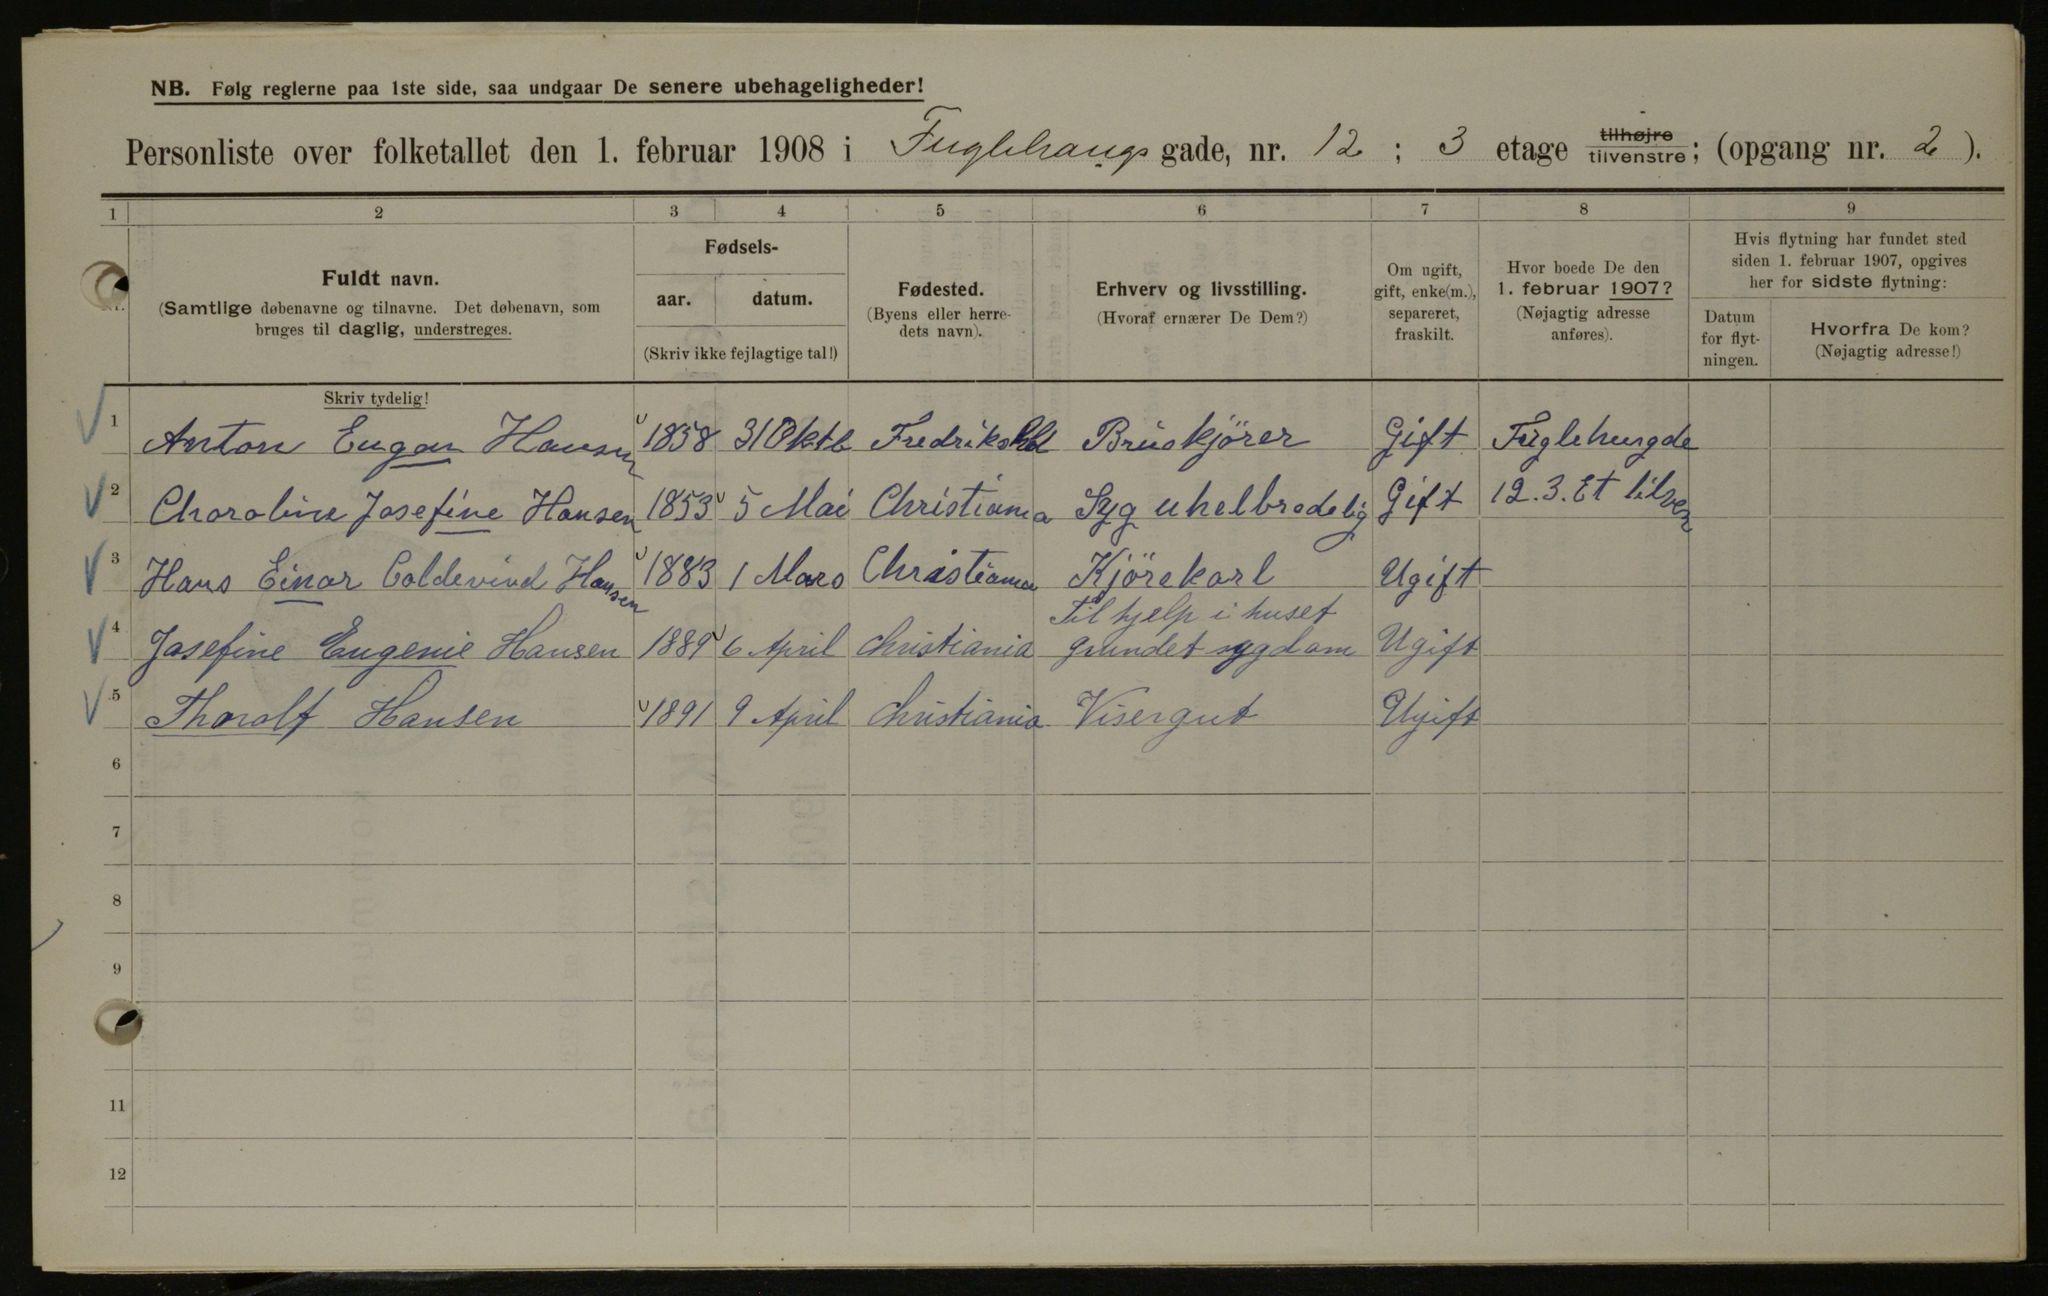 NB. Følg reglerne paa 1ste side, saa undgaar De senere ubehageligheder!
Personliste over folketallet den 1. februar 1908 i Fuglehaugs gade, nr. 12 ; 3 etage tilhøjre tilvenstre ; (opgang nr. 2 ).
1 2 3 4 5 6 7 8 9
Nr.
Fuldt navn.
(Samtlige døbenavne og tilnavne. Det døbenavn, som
bruges til daglig, understreges.
Fødsels-
aar. datum.
(Skriv ikke fejlagtige tal!)
Fødested.
(Byens eller herre-
dets navn).
Erhverv og livsstilling.
(Hvoraf ernærer De Dem?)
Om ugift,
gift, enke(m.),
separeret,
fraskilt.
Hvor boede De den
1. februar 1907?
(Nøjagtig adresse
anføres).
Hvis flytning har fundet sted
siden 1. februar 1907, opgives
her for sidste flytning:
Datum
for flyt-
ningen.
Hvorfra De kom?
(Nøjagtig adresse!)
Skriv tydelig!
1 Anton Eugan Hansen 1858 31 Oktb Fredrikshld Bruskjörer Gift Fuglehusgde
2 Charoline Josefine Hansen 1853 5 Mai Christiania Syg uhelbredelig Gift 12. 3. Et tilven
3 Hans Einar Coldevind Hansen 1883 1 Mars Christiania Kjörekarl Ugift
Til hjelp i huset
4 Josefine Eugenie Hansen 1889 6 April Christiania grundet sygdom Ugift
5 Thoralf Hansen 1891 9 April Christiania Visergut Ugift
6
7
8
9
11
12